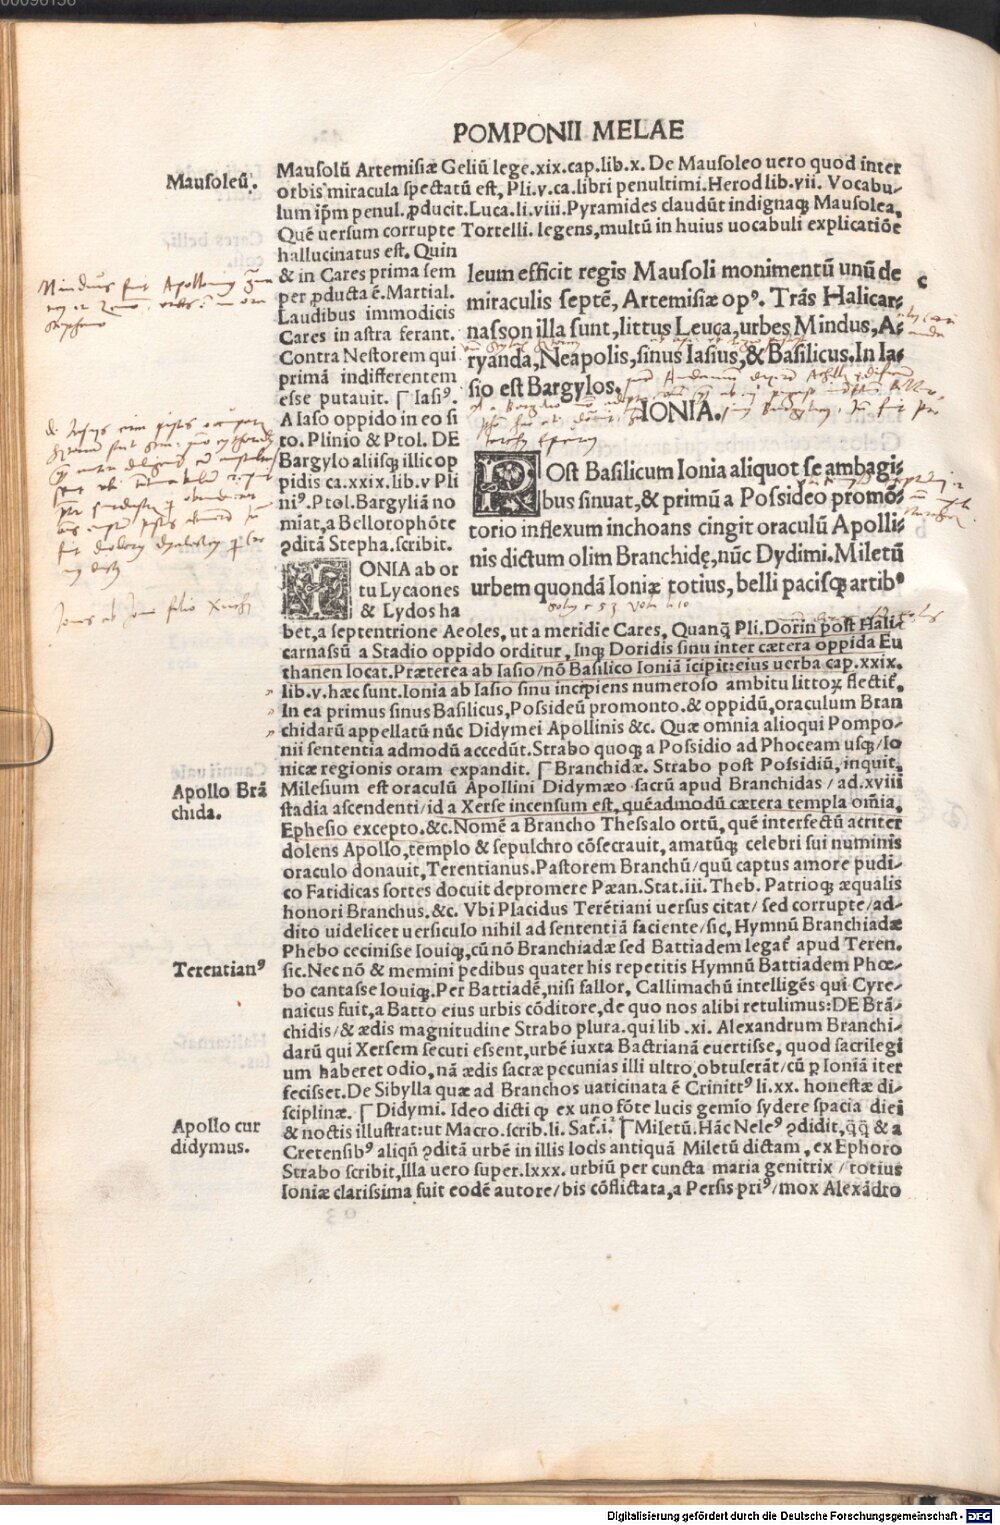 POMPONII MELAE
Mausoleū.
Mausolū Artemisiæ Geliū lege.xix.cap.lib.x. De Mausoleo uero quod inter
orbis miracula spectatū est, Pli.v.ca.libri penultimi.Herod lib.vii. Vocabu-
lum ip̄m penul. ꝓducit.Luca.li.viii.Pyramides claudūt indignaqꝫ Mausolea,
Quē uersum corrupte Tortelli. legens,multū in huius uocabuli explicatiōe
hallucinatus est. Quin
& in Cares prima sem
per ꝓducta ē.Martial.
Laudibus immodicis
Cares in astra ferant.
Contra Nestorem qui
primā indifferentem
esse putauit. ⌈ Iasiꝰ.
A Iaso oppido in eo si
to. Plinio & Ptol. DE
Bargylo aliisqꝫ illic op
pidis ca.xxix.lib.v Pli
niꝰ.Ptol.Bargyliā no
miat,a Bellorophōte
ꝯditā Stepha.scribit.
leum efficit regis Mausoli monimentū unū de
miraculis septē, Artemisiæ opꝰ. Trās Halicar-
nasson illa sunt,littus Leuca,urbes Mindus,A-
ryanda,Neapolis,sinus Iasius,& Basilicus.In Ia-
sio est Bargylos.
c
IONIA.
POst Basilicum Ionia aliquot se ambagi-
bus sinuat,& primū a Possideo promō-
torio inflexum inchoans cingit oraculū Apolli-
nis dictum olim Branchidę,nūc Dydimi.Miletū
urbem quondā Ioniæ totius, belli pacisqꝫ artibꝰ
IONIA ab or
tu Lycaones
& Lydos ha
bet,a septentrione Aeoles, ut a meridie Cares, Quanq̄ Pli.Dorin post Hali-
carnassū a Stadio oppido orditur, Inqꝫ Doridis sinu inter cætera oppida Eu
thanen locat.Præterea ab Iasio/nō Basilico Ioniā īcipit:eius uerba cap.xxix.
lib.v.hæc sunt.Ionia ab Iasio sinu incipiens numeroso ambitu littoꝝ flectit̄,
In ea primus sinus Basilicus,Possideū promonto.& oppidū,oraculum Bran
chidarū appellatū nūc Didymei Apollinis &c. Quæ omnia alioqui Pompo-
nii sententia admodū accedūt.Strabo quoqꝫ a Possidio ad Phoceam usqꝫ/Io
nicæ regionis oram expandit. ⌈ Branchidæ. Strabo post Possidiū, inquit,
Apollo Brā
chida.
Milesium est oraculū Apollini Didymæo sacrū apud Branchidas / ad.xviii
stadia ascendenti/id a Xerse incensum est, quēadmodū cætera templa om̄ia,
Ephesio excepto.&c.Nomē a Brancho Thessalo ortū, quē interfectū acriter
dolens Apollo,templo & sepulchro cōsecrauit, amatūqꝫ celebri sui numinis
oraculo donauit,Terentianus.Pastorem Branchū/quū captus amore pudi-
co Fatidicas sortes docuit depromere Pæan.Stat.iii. Theb. Patrioqꝫ æqualis
honori Branchus.&c. Vbi Placidus Terētiani uersus citat/ sed corrupte/ad-
dito uidelicet uersiculo nihil ad sententiā faciente/sic, Hymnū Branchiadæ
Phebo cecinisse Iouiqꝫ,cū nō Branchiadæ sed Battiadem legat̄ apud Teren.
Terentianꝰ
sic.Nec nō & memini pedibus quater his repetitis Hymnū Battiadem Phœ-
bo cantasse Iouiqꝫ.Per Battiadē,nisi fallor, Callimachū intelligēs qui Cyre-
naicus fuit,a Batto eius urbis cōditore,de quo nos alibi retulimus:DE Brā-
chidis/& ædis magnitudine Strabo plura.qui lib .xi. Alexandrum Branchi-
darū qui Xersem secuti essent,urbē iuxta Bactrianā euertisse, quod sacrilegi
um haberet odio, nā ædis sacræ pecunias illi ultro obtulerāt/cū ꝑ Ioniā iter
fecisset.De Sibylla quæ ad Branchos uaticinata ē Crinittꝰ li.xx. honestæ di-
sciplinæ. ⌈ Didymi. Ideo dicti ꝙ ex uno fōte lucis gemīo sydere spacia diei
Apollo cur
didymus.
& noctis illustrat:ut Macro.scrib.li. Sat̄.i. ⌈ Miletū.Hāc Neleꝰ ꝯdidit,q̄q̄ & a
Cretensibꝰ aliqn̄ ꝯditā urbē in illis locis antiquā Miletū dictam, ex Ephoro
Strabo scribit,Illa uero super.lxxx. urbiū per cuncta maria genitrix / totius
Ioniæ clarissima fuit eodē autore/bis cōflictata,a Persis priꝰ/mox Alexādro
Digitalisierung gefördert durch die Deutsche Forschungsgemeinschaft - DFG